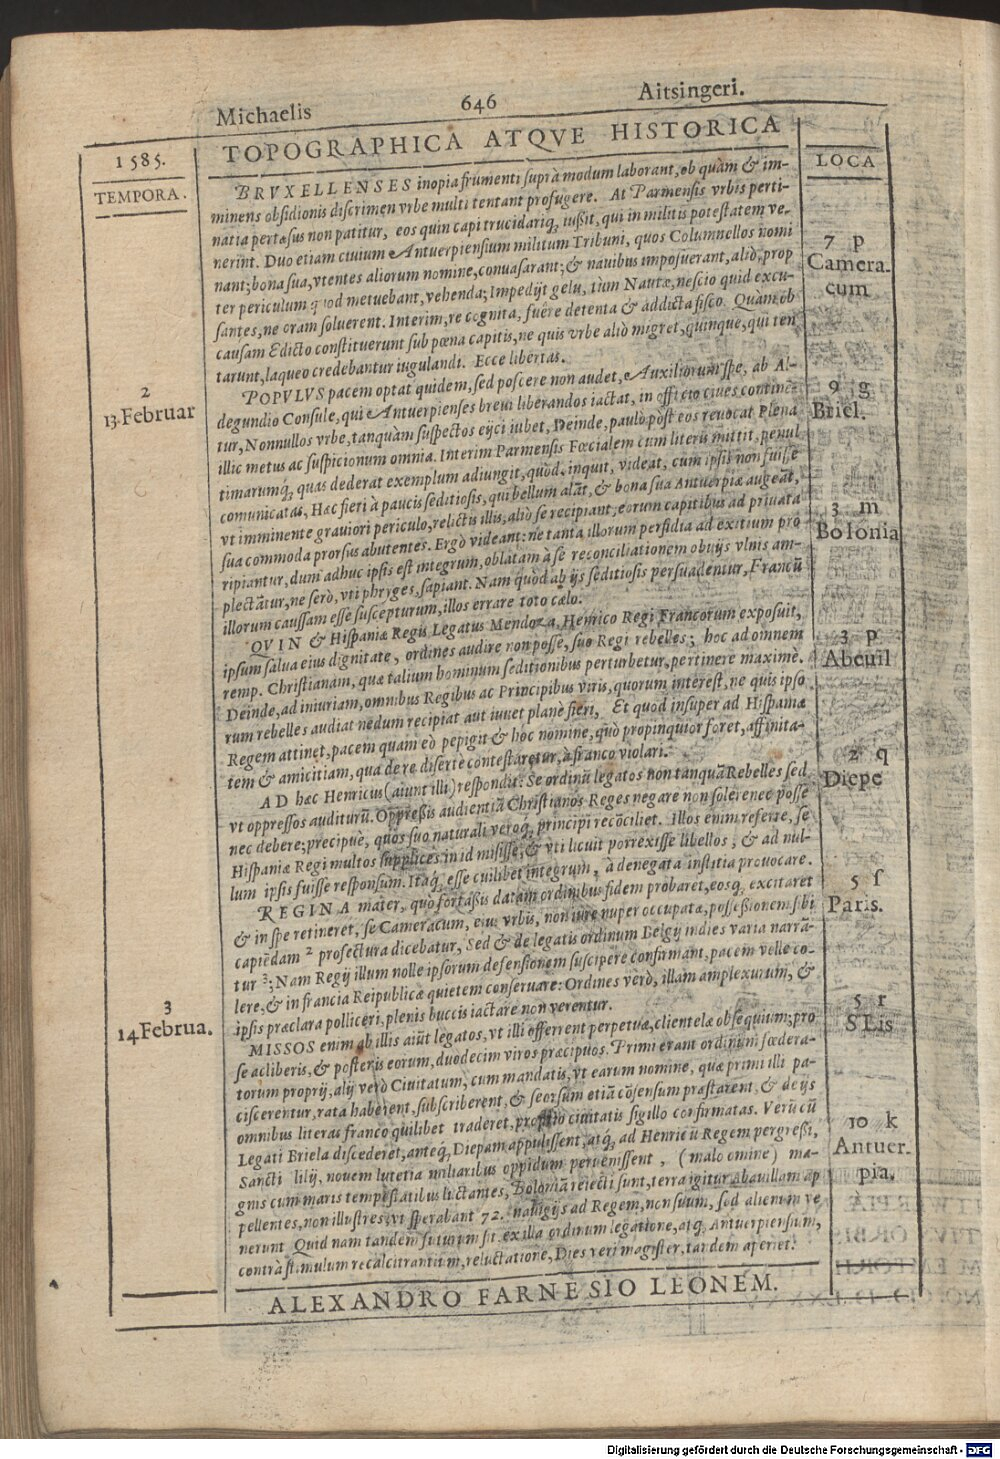 Michaelis 646 Aitsingeri.
1585. TOPOGRAPHICA ATQVE HISTORICA LOCA
TEMPORA.
BRVXELLENSES inopia frumenti suprà modum laborant, ob quàm & im-
minens obsidionis discrimen vrbe multi tentant profugere. At Parmensis vrbis perti-
natia pertæsus non patitur, eos quin capi trucidariq́; iußit, qui in militis potestatem ve-
nerint. Duo etiam ciuium Antuerpiensium militum Tribuni, quos Columnellos nomi
nant; bona sua, vtentes aliorum nomine, conuasarant; & nauibus imposuerant, aliò, prop
ter periculum quod metuebant, vehenda; Impedijt gelu, tùm Nautæ, nescio quid excu-
santes, ne oram soluerent. Interim, re cognita, fuêre detenta & addicta fisco. Quàm ob
causam Edicto constituerunt sub pœna capitis, ne quis vrbe aliò migret, quinque, qui ten
tarunt, laqueo credebantur iugulandi. Ecce libertas.
POPVLVS pacem optat quidem, sed poscere non audet, Auxiliorum spe, ab Al-
degundio Consule, qui Antuerpienses breui liberandos iactat, in officio ciues continē
tur, Nonnullos vrbe, tanquàm suspectos eijci iubet, Deinde, paulò pòst eos reuocat Plena
illic metus ac suspicionum omnia. Interim Parmensis Fœcialem cum literis mittit, penul
timarumq́; quas dederat exemplum adiungit, quòd, inquit, videat, cum ipsis non fuisse
comunicatas, Hac fieri à paucis seditiosis, qui bellum alāt, & bona sua Antuerpiæ augeāt,
vt imminente grauiori periculo, relictis illis, aliò se recipiant, eorum capitibus ad priuata
sua commoda prorsus abutentes. Ergò videant: ne tanta illorum perfidia ad exitium pro
ripiantur, dum adhuc ipsis est integrum, oblatam à se reconciliationem obuijs vlnis am-
plectātur, ne serò, vti phryges, sapiant. Nam quòd ab ijs seditiosis persuadentur, Francū
illorum caussam esse suscepturum, illos errare toto cælo.
QVIN & Hispaniæ Regis Legatus Mendoza, Henrico Regi Francorum exposuit,
ipsum salua eius dignitate, ordines audire non posse, suo Regi rebelles; hoc ad omnem
remp. Christianam, quæ talium hominum seditionibus perturbetur, pertinere maximè.
Deinde, ad iniuriam, omnibus Regibus ac Principibus viris, quorum interest, ne quis ipso
rum rebelles audiat nedum recipiat aut iuuet planè fieri, Et quod insuper ad Hispaniæ
Regem attinet, pacem quam eò pepigit & hoc nomine, quò propinquior foret, affinita-
tem & amicitiam, qua de re diserte contestaretur, à franco violari.
AD hæc Henricus (aiunt illi) respondit: Se ordinū legatos non tanquā Rebelles sed
vt oppressos auditurū. Oppreßis audientiā Christianos Reges negare non solere nec posse
nec debere; præcipuè, quos suo naturali veroq́; principi recōciliet. Illos enim referre, se
Hispaniæ Regi multos supplices in id misisse, & vti licuit porrexisse libellos, & ad nul-
lum ipsis fuisse responsum. Itaq́; esse cuilibet integrum, à denegata iustitia prouocare.
REGINA mater, quo fortaßis datam ordinibus fidem probaret, eosq́; excitaret
& in spe retineret, se Cameracum, eius vrbis, non iure nuper occupata, possessionem sibi
capiēdam 2 profectura dicebatur, Sed & de legatis ordinum Belgij indies varia narrā-
tur 3; Nam Regij illum nolle ipsorum defensionem suscipere confirmant, pacem velle co-
lere, & in francia Reipublicæ quietem conseruare: Ordines verò, illam amplexurum, &
ipsis præclara polliceri, plenis buccis iactare non verentur.
MISSOS enim ab illis aiūt legatos, vt illi offerrent perpetuæ, clientelæ obsequium; pro
se ac liberis, & posteris eorum, duodecim viros præcipuos. Primi erant ordinum fœdera-
torum proprij, alij verò Ciuitatum, cum mandatis, vt earum nomine, quæ primi illi pa-
ciscerentur, rata haberent, subscriberent, & seorsum etiā cōsensum præstarent, & de ijs
omnibus literas franco quilibet traderet, proprio ciuitatis sigillo confirmatas. Verū cū
Legati Briela discederet, anteq́; Diepam appulissent, atq́; ad Henricū Regem pergreßi,
Sancti lilij, nouem lutetia miliaribus oppidum peruenissent, (malo omine) ma-
gnis cum maris tempestatibus luctantes, Boloniā reiecti sunt, terra igitur Abauillam ap
pellentes, non illustres, vt sperabant 72. nauigijs ad Regem, non suum, sed alienum ve
nerunt Quid nam tandem futurum sit ex illa ordinum legatione, atq́; Antuerpiensium,
contrà stimulum recalcitrantium, reluctatione, Dies veri magister, tandem aperiet.
ALEXANDRO FARNESIO LEONEM.
2
13. Februar
3
14 Februa.
7 p
Camera-
cum
9 g
Briel.
3 m
Bolonia
3 p
Abeuil
2 q
Diepe
5 f
Paris.
5 r
S Lis
10 k
Antuer-
pia.
Digitalisierung gefördert durch die Deutsche Forschungsgemeinschaft - DFG